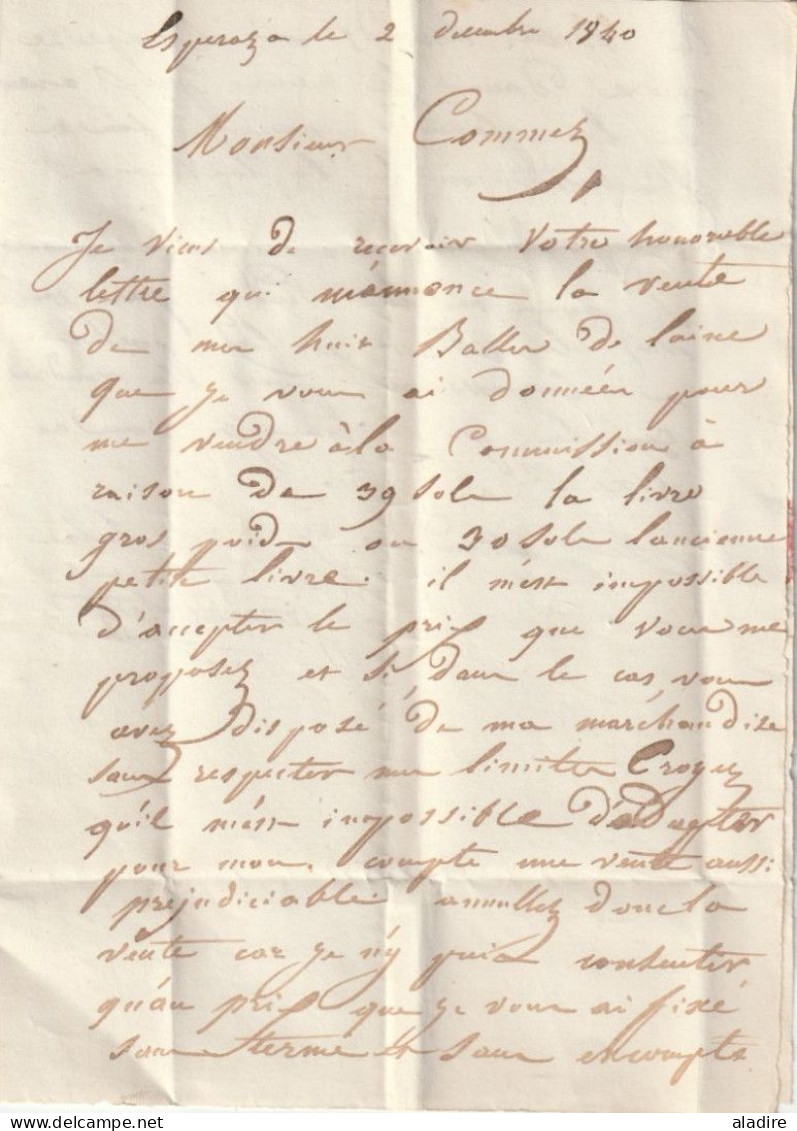 Esperaza le 2 decembre 1840
Monsieur Commez
Je viens de recevoir votre honorable
lettre qui m'annonce la vente
de mes huit Balles de laine
que je vous ai données pour
me vendre à la Commission à
raison de 39 sols la livre
gros poids ou 30 sols l'ancienne
petite livre. il m'est impossible
d'accepter le prix que vous me
proposez et si dans le cas, vous
avez disposé de ma marchandise
sans respecter mes limites Croyez
qu'il m'est impossible d'adopter
pour mon compte une vente aussi
prejudiciable. annullez donc la
vente car je n'y puis consentir
qu'au prix que je vous ai fixé
sans terme et sans escompte
aladire